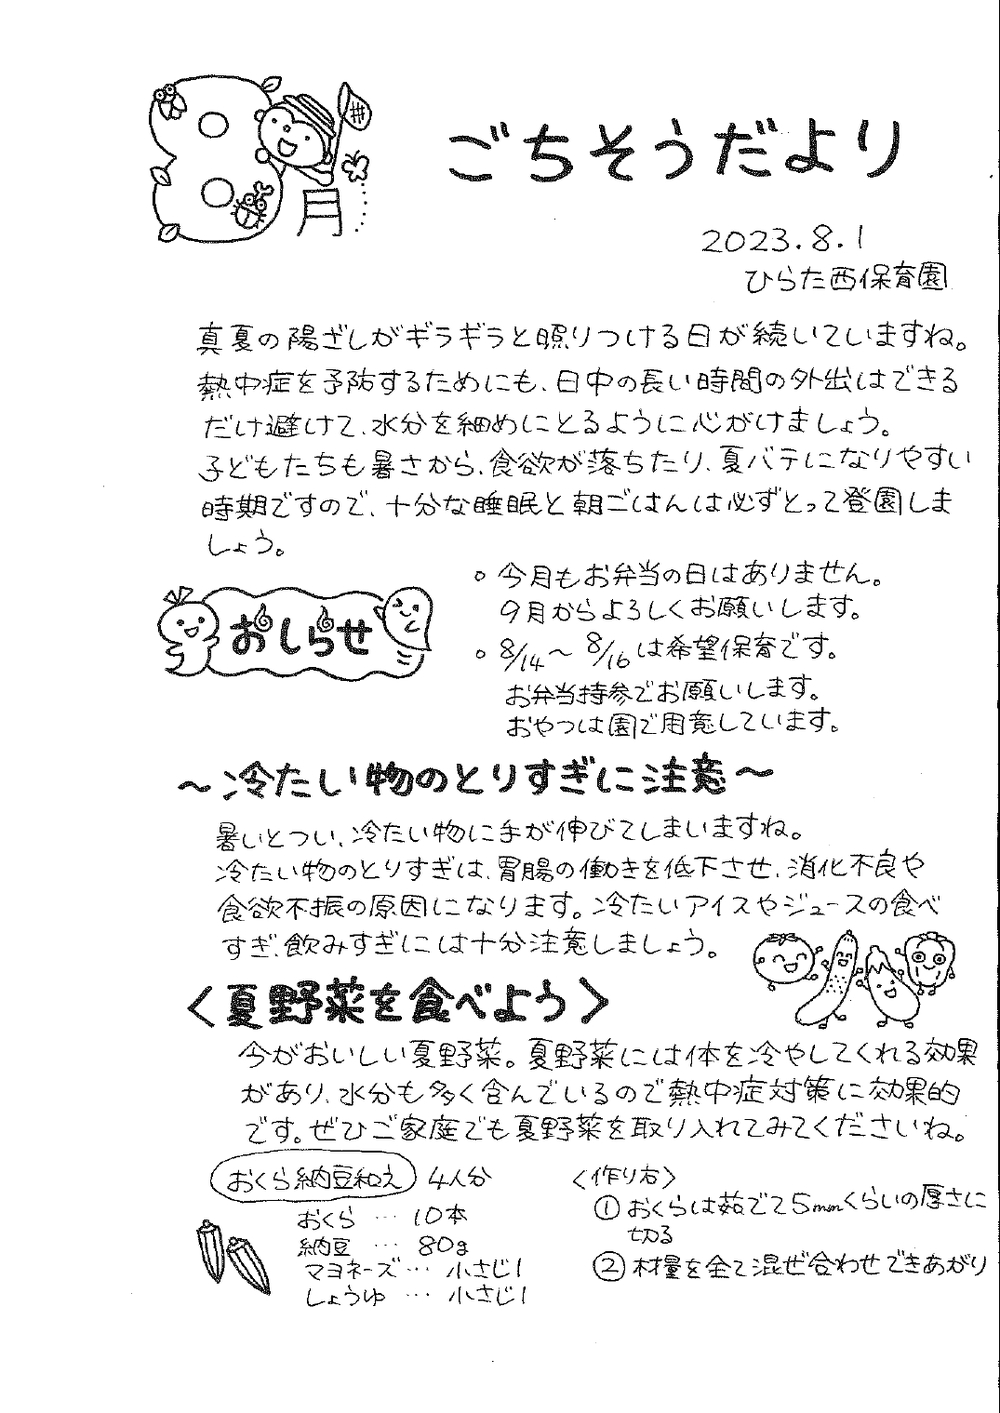 8月
ごちそうだより
2023.8.1
ひらた西保育園
真夏の陽ざしがギラギラと照りつける日が続いていますね。
熱中症を予防するためにも、日中の長い時間の外出はできる
だけ避けて、水分を細めにとるように心がけましょう。
子どもたちも暑さから、食欲が落ちたり、夏バテになりやすい
時期ですので、十分な睡眠と朝ごはんは必ずとって登園しま
しょう。
おしらせ
○ 今月もお弁当の日はありません。
9月からよろしくお願いします。
○ 8/14～8/16は希望保育です。
お弁当持参でお願いします。
おやつは園で用意しています。
～冷たい物のとりすぎに注意～
暑いとつい、冷たい物に手が伸びてしまいますね。
冷たい物のとりすぎは、胃腸の働きを低下させ、消化不良や
食欲不振の原因になります。冷たいアイスやジュースの食べ
すぎ、飲みすぎには十分注意しましょう。
＜夏野菜を食べよう＞
今がおいしい夏野菜。夏野菜には体を冷やしてくれる効果
があり、水分も多く含んでいるので熱中症対策に効果的
です。ぜひご家庭でも夏野菜を取り入れてみてくださいね。
おくら納豆和え 4人分
おくら … 10本
納豆 … 80g
マヨネーズ … 小さじ1
しょうゆ … 小さじ1
＜作り方＞
① おくらは茹でて5mmくらいの厚さに
切る
② 材量を全て混ぜ合わせできあがり